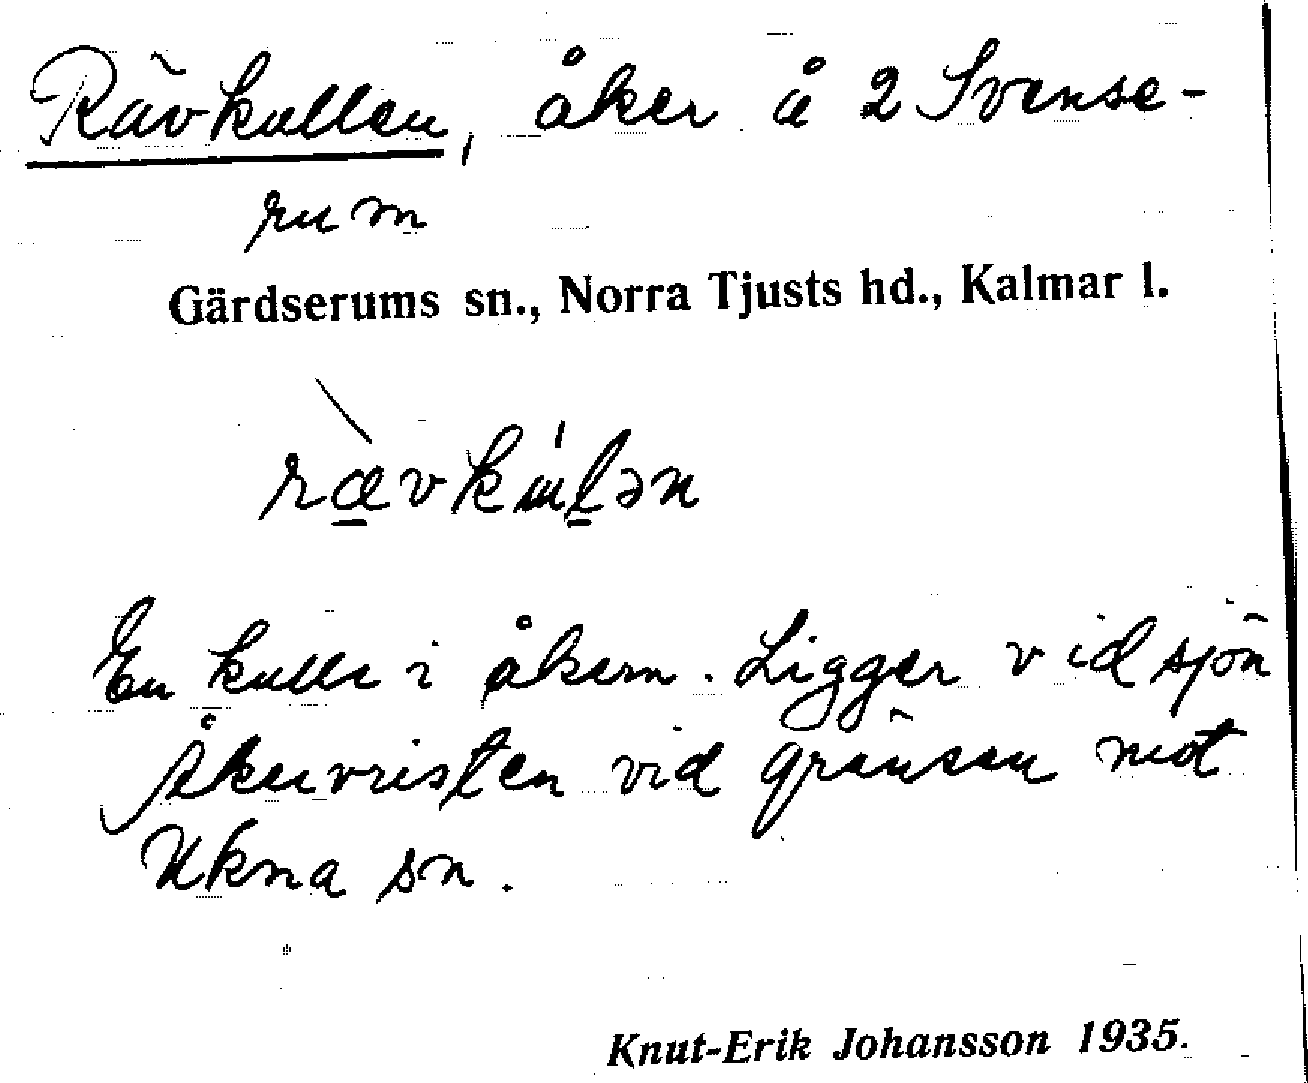 Rävkullen, åker å 2 Svense-
rum
Gärdserums sn., Norra Tjusts hd., Kalmar l.
rævkulən
En kulle i åkern. Ligger vid sjön
Åkervristen vid gränsen mot
Ukna sn.
Knut-Erik Johansson 1935.